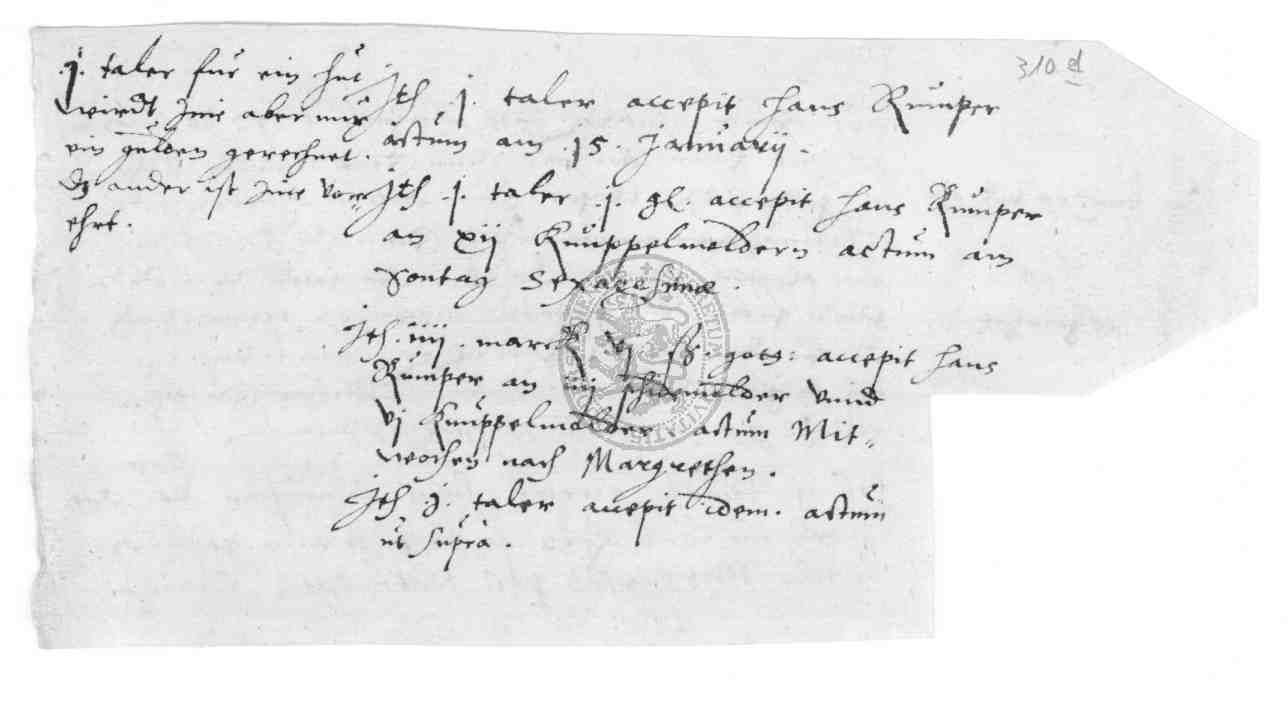 310 d
.j. taler für ein hut
wirdt Ime aber nur
ein gulden gerechnet.
dz ander ist Ime vor
ehrt.
Ith .j. taler accepit hans Rumper
actum am .15. January.
Ith .j. taler .j. gl. accepit hans Rumper
an xij Knuppelmeldern actum am
Sontag Sexagesimae.
Ith. iiij. marck vj ß. gotg: accepit hans
Rumper an iiij melder vnnd
vj Knuppelmelder actum Mit„
wochen nach Margrethen.
Ith j. taler accepit idem. actum
ut supra.